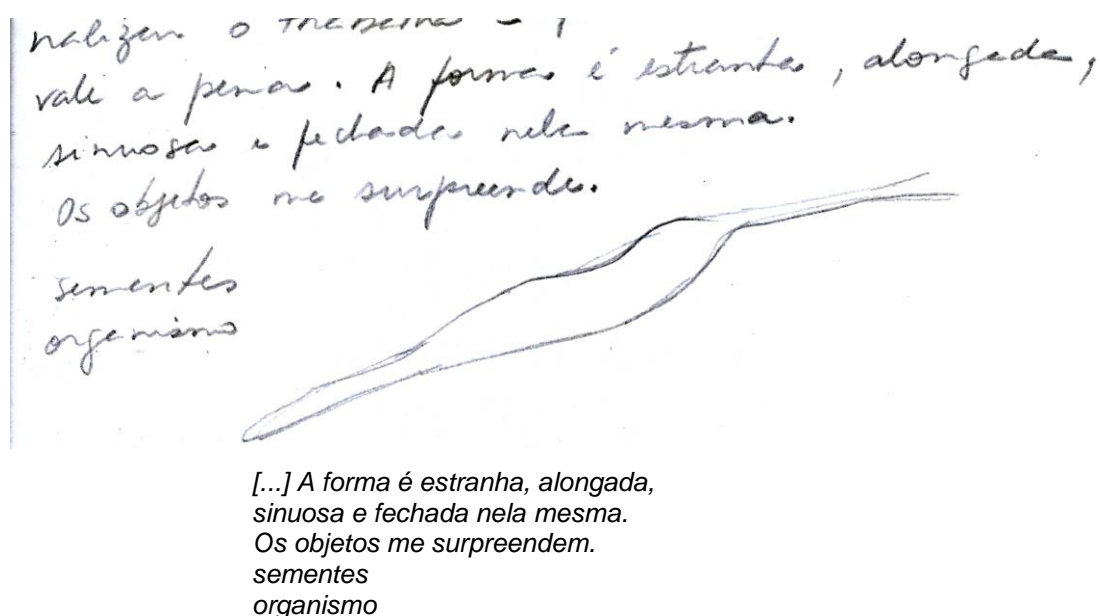 nalizar o trabalho
vale a pena. A forma é estranha, alongada,
sinuosa e fechada nela mesma.
Os objetos me surpreende.
sementes
organismo
[...] A forma é estranha, alongada,
sinuosa e fechada nela mesma.
Os objetos me surpreendem.
sementes
organismo